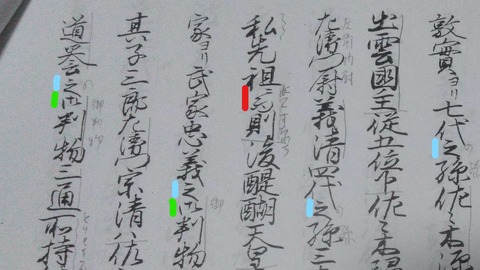 敦實ヨリ七代之孫佐々木源
出雲國主従五位下佐々木源
左衛門尉義清四代之孫三
私先祖 則後醍醐天皇
家ヨリ武家忠義之御判物
御
其子三郎左衛門宗清佐
道誉之御判物三通所持
の 御判物